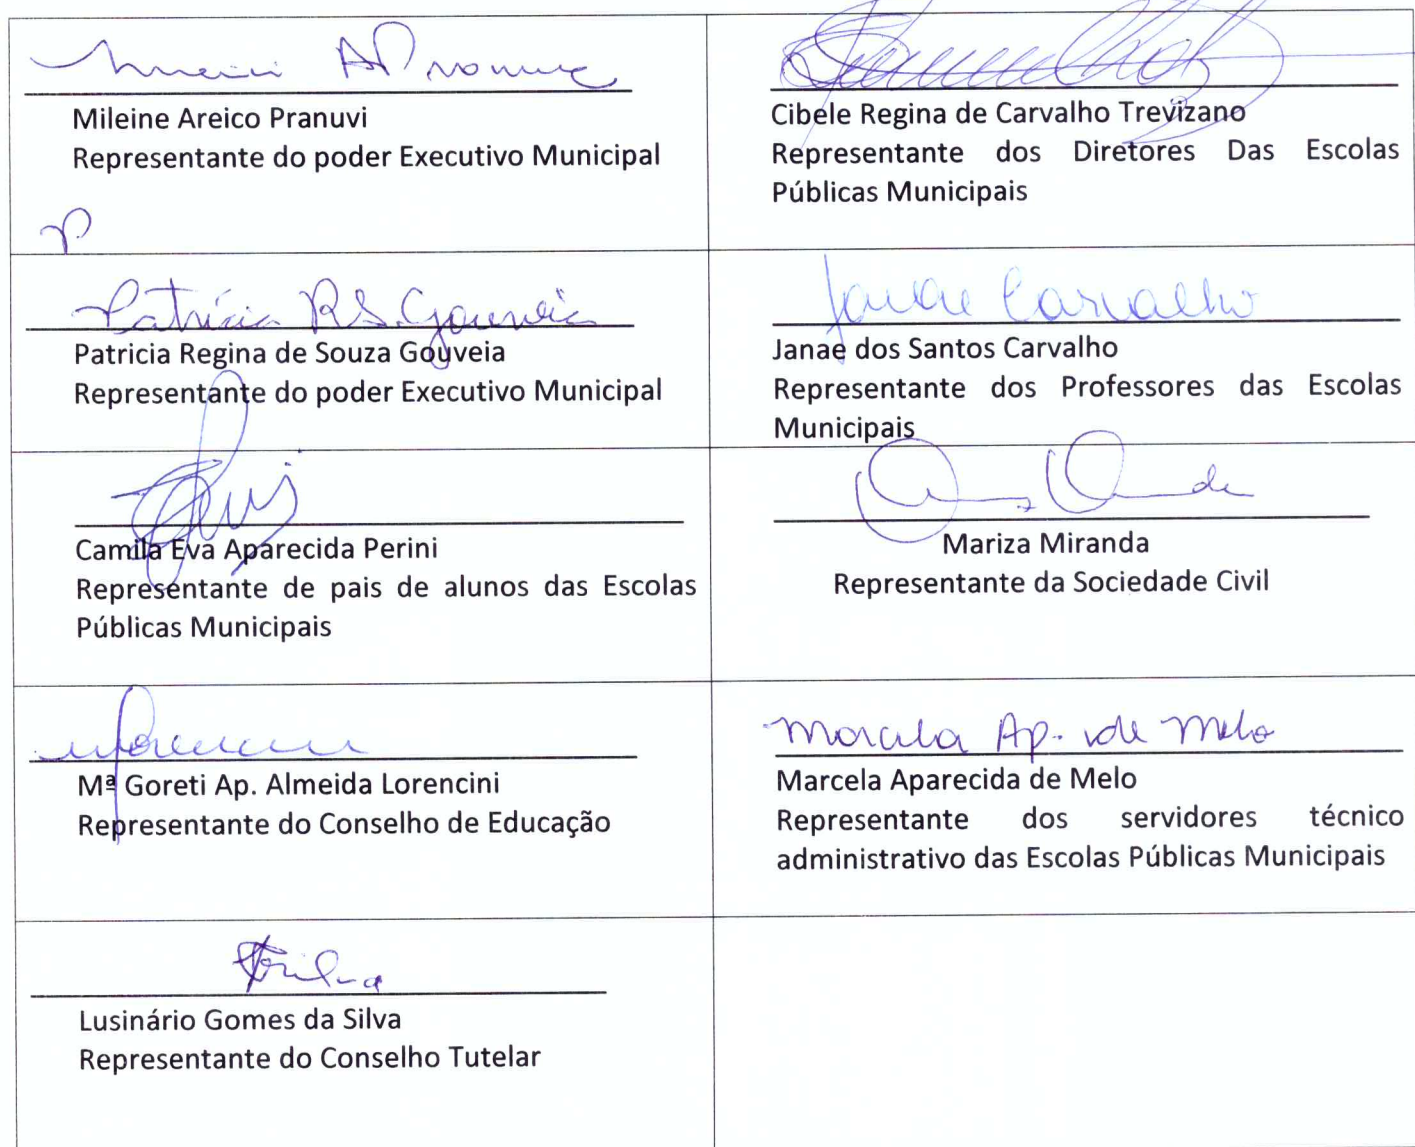 Mileine Areico Pranuvi
Representante do poder Executivo Municipal
Cibele Regina de Carvalho Trevizano
Representante dos Diretores Das Escolas
Públicas Municipais
Patrícia R.S. Gouveia
Patricia Regina de Souza Gouveia
Representante do poder Executivo Municipal
Janae Carvalho
Janae dos Santos Carvalho
Representante dos Professores das Escolas
Municipais
Camila Eva Aparecida Perini
Representante de pais de alunos das Escolas
Públicas Municipais
Mariza Miranda
Representante da Sociedade Civil
Mª Goreti Ap. Almeida Lorencini
Representante do Conselho de Educação
Marcela Ap. de Melo
Marcela Aparecida de Melo
Representante dos servidores técnico
administrativo das Escolas Públicas Municipais
Lusinário Gomes da Silva
Representante do Conselho Tutelar